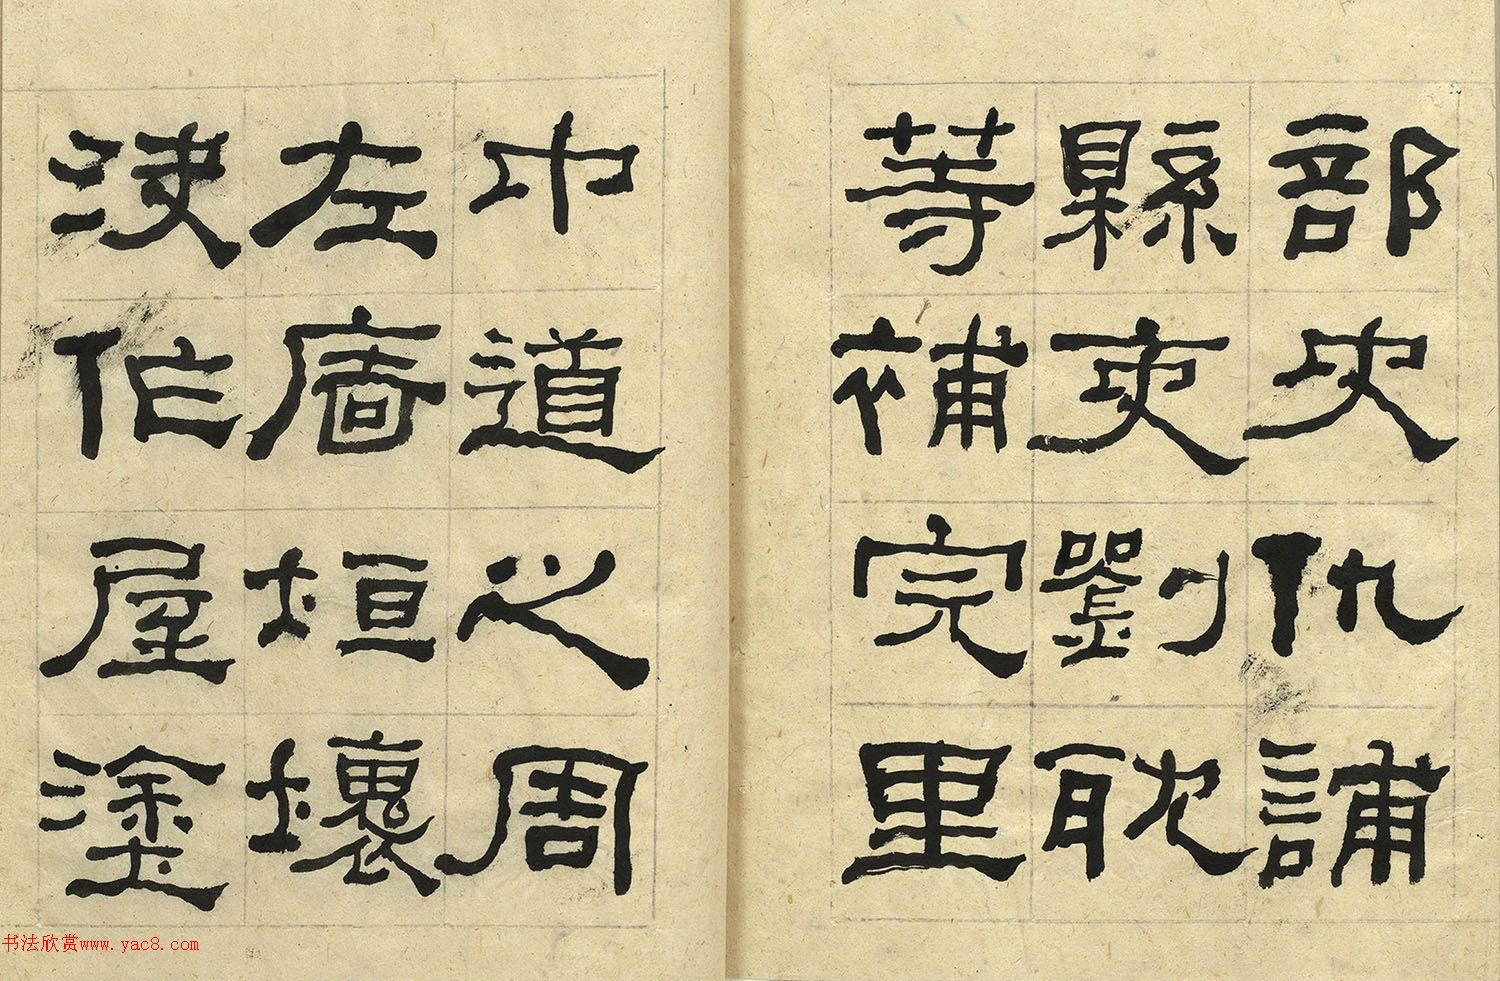 部史仇誧
縣吏劉耽
等補完里
中道之周
左廧垣壞
決作屋塗
书法欣赏www.yac8.com